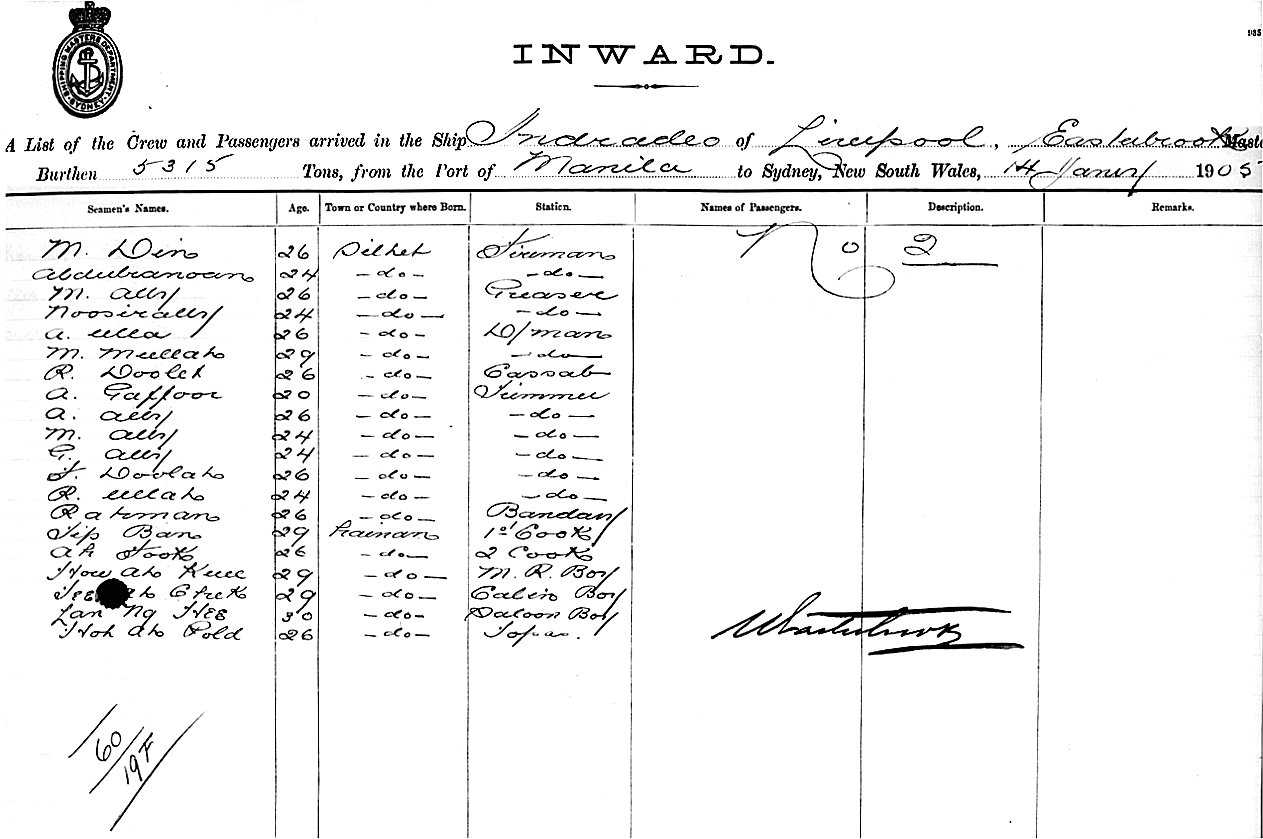 SHIPPING MASTERS DEPARTMENT
SYDNEY
INWARD.
A List of the Crew and Passengers arrived in the Ship Indradeo of Liverpool, Eastabrook Maste
Burthen 5315 Tons, from the Port of Manila to Sydney, New South Wales, 14 Jany 1905
Seamen's Names. Age. Town or Country where Born. Station. Names of Passengers. Description. Remarks.
M. Din 26 Silhet Fireman No 2
24 -do- -do-
M. Ally 26 -do- Greaser
Noosirally 24 -do- -do-
A. Ulla 26 -do- D/man
M. Mullah 29 -do- -do-
R. Doolet 26 -do- Cassab
A. Gaffoor 20 -do- Trimmer
A. Ally 26 -do- -do-
M. Ally 24 -do- -do-
G. Ally 24 -do- -do-
Doolah 26 -do- -do-
R. Ullah 24 -do- -do-
Rahman 26 -do- Bandary
Sip Ban 29 Hainan 1st Cook
Ah Fook 26 -do- 2 Cook
How Ah 29 -do- M. R. Boy
29 -do- Cabin Boy
Ng Hee 30 -do- Saloon Boy
Hoh Ah Pold 26 -do- Topas.
60/19F